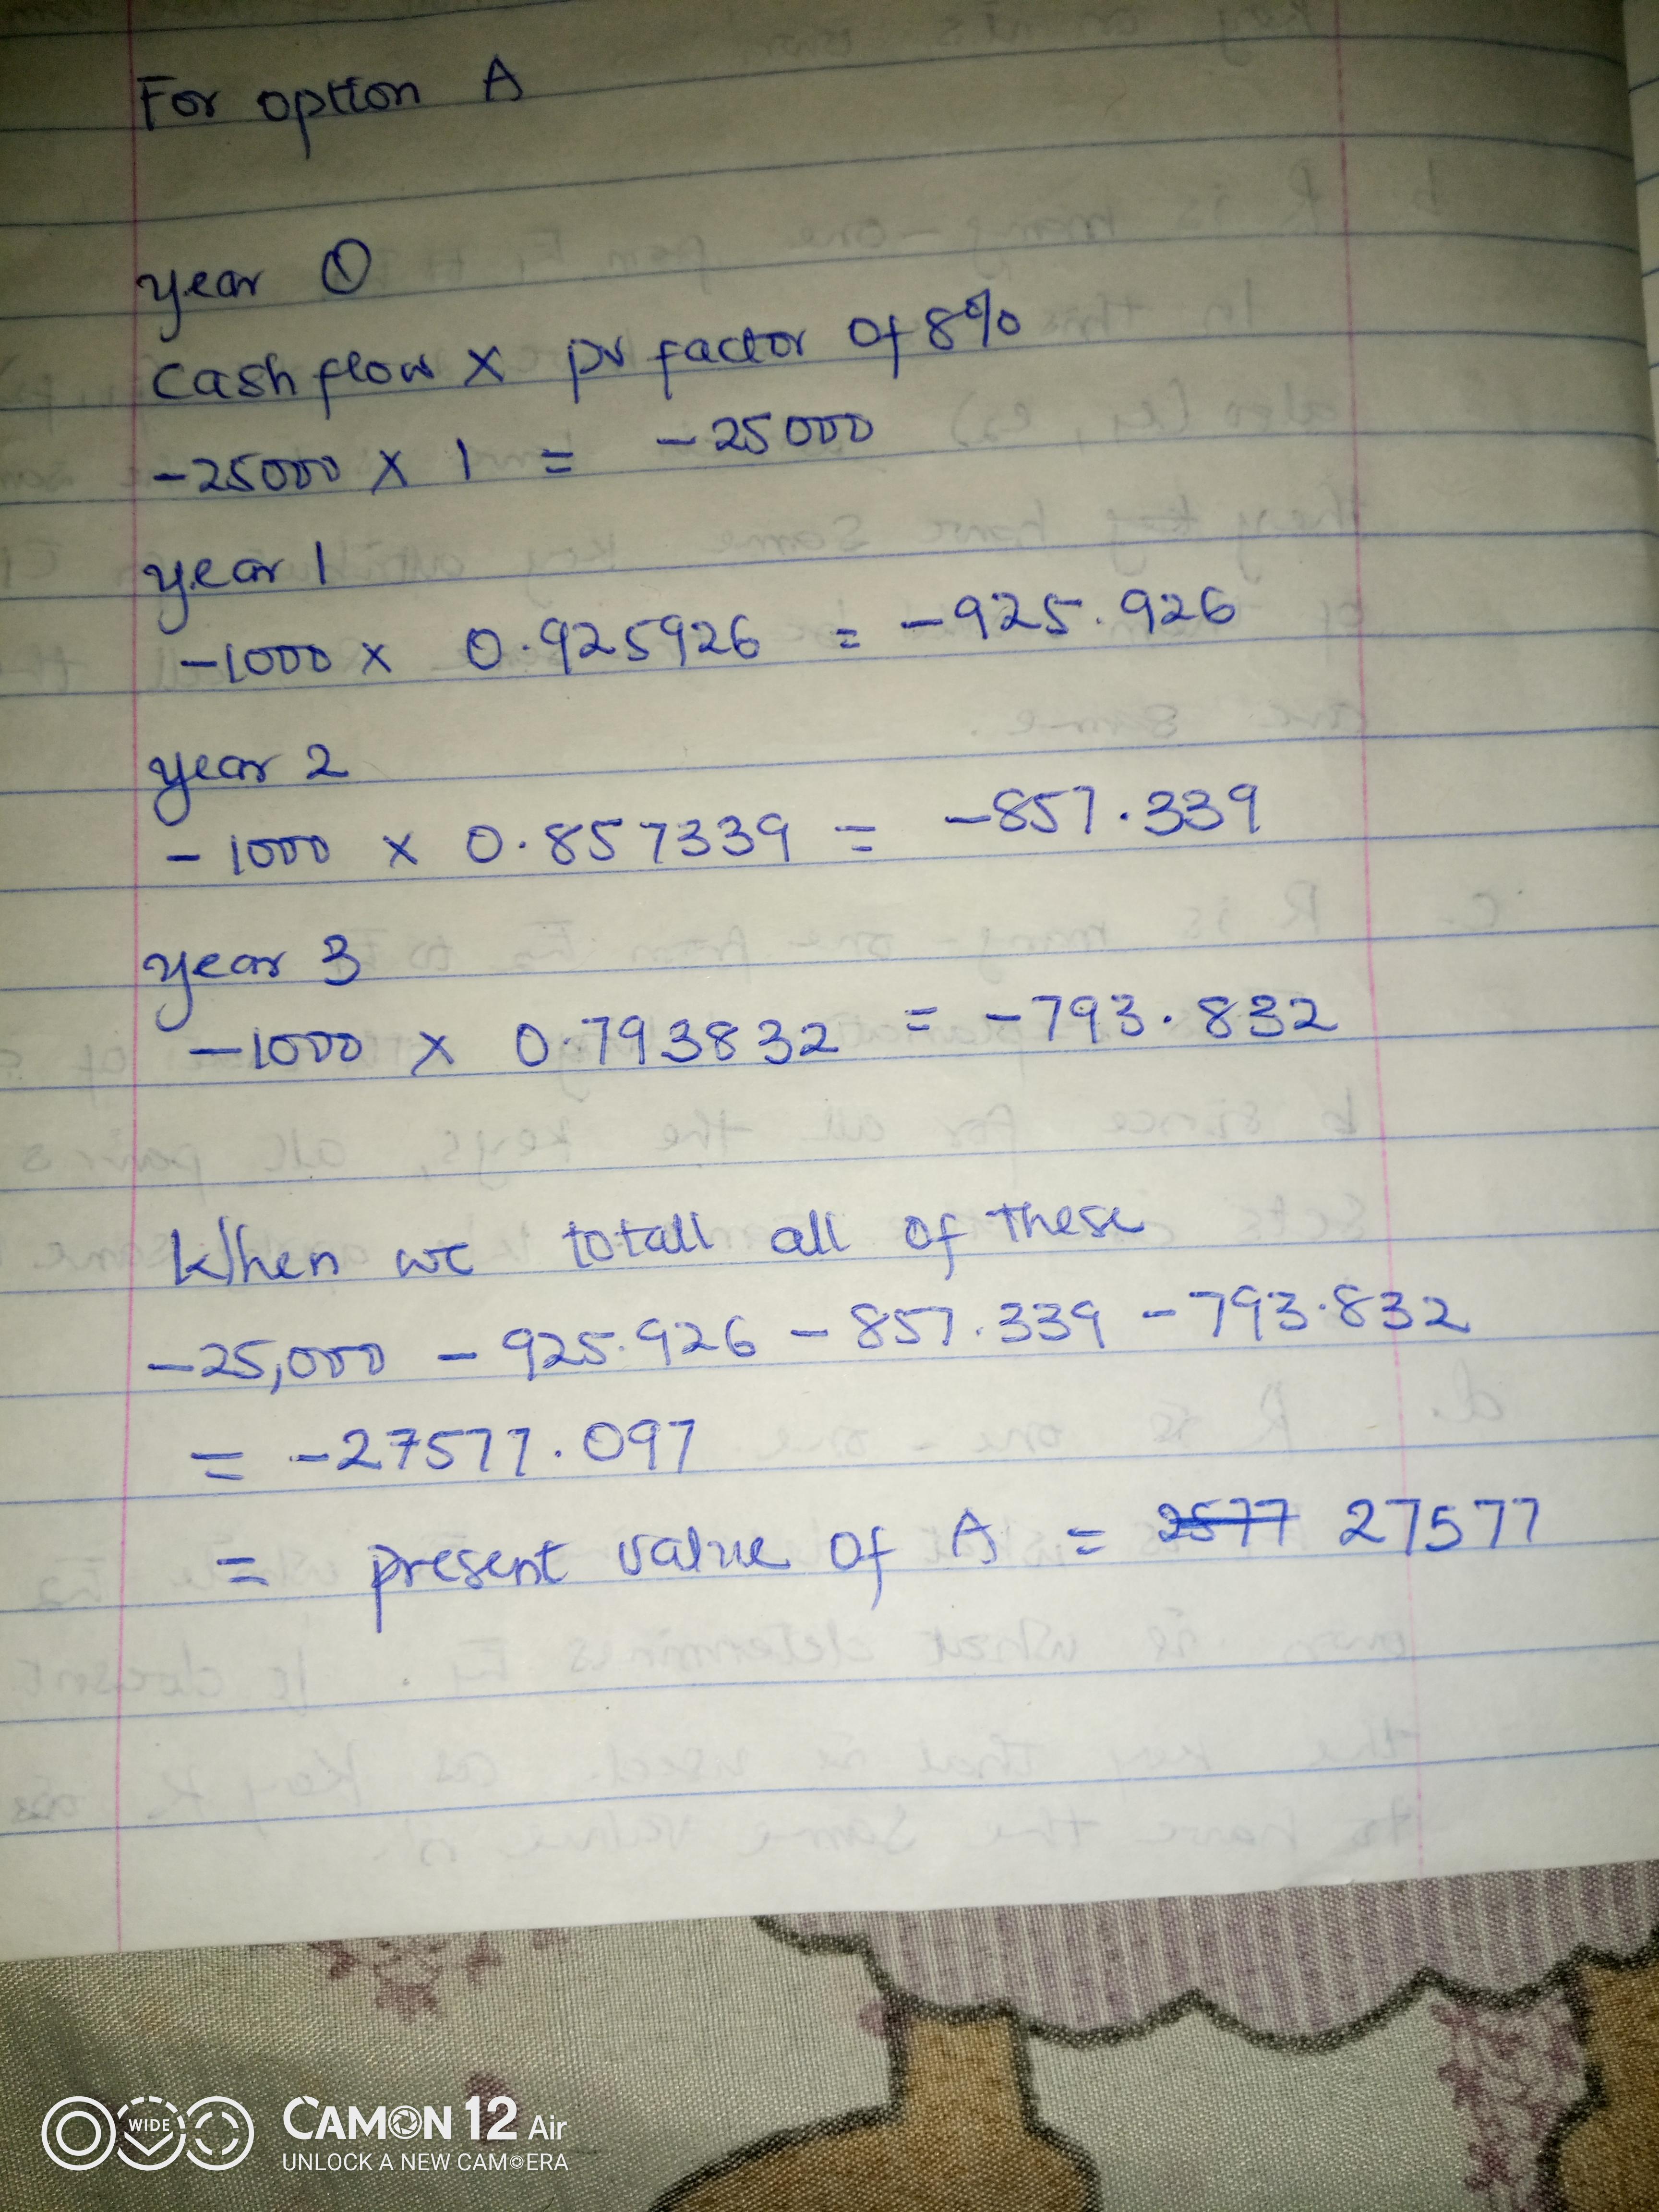 For option A
year 0
Cash flow x pv factor of 8%
-25000 x 1 = -25000
year 1
-1000 x 0.925926 = -925.926
year 2
-1000 x 0.857339 = -857.339
year 3
-1000 x 0.793832 = -793.832
When we totall all of these
-25,000 - 925.926 - 857.339 - 793.832
= -27577.097
= present value of A = 2577 27577
WIDE
CAMON 12 Air
UNLOCK A NEW CAMERA